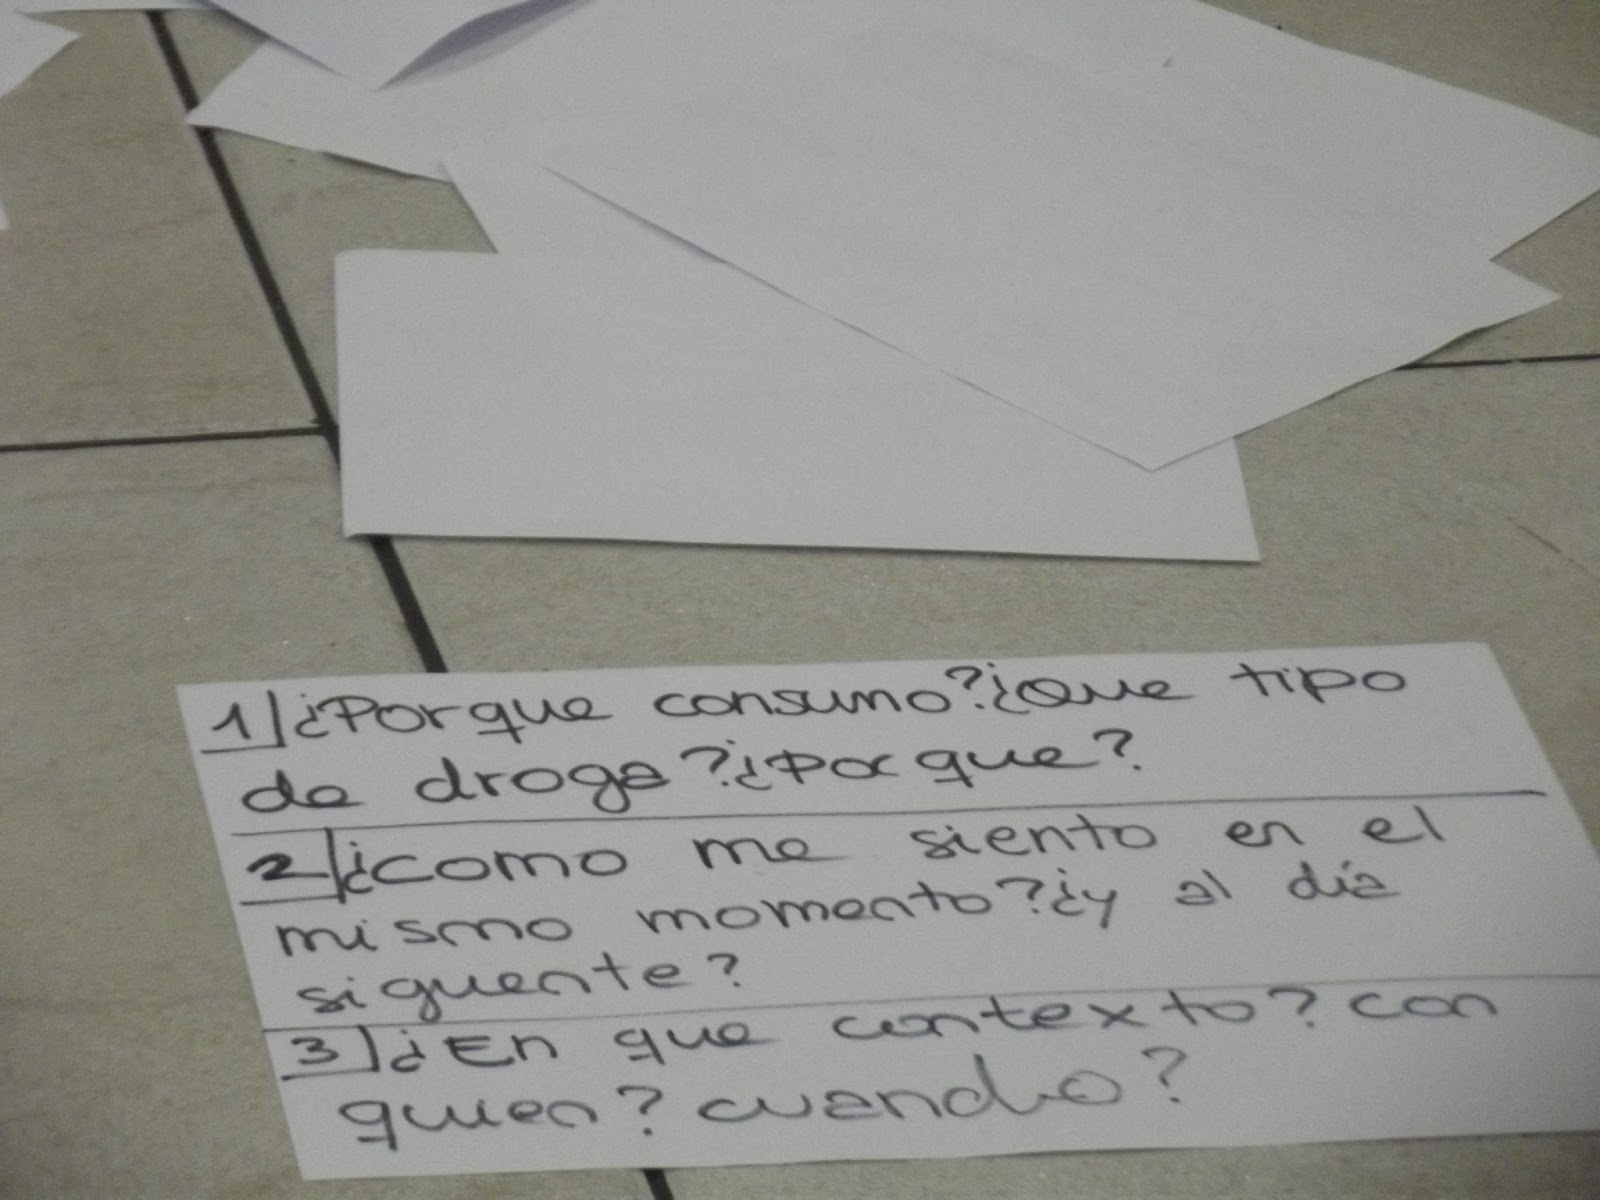 1) ¿Por que consumo? ¿Que tipo
de droga? ¿Por que?
2) ¿como me siento en el
mismo momento? ¿y al día
siguente?
3) ¿En que contexto? con
quien? cuando?